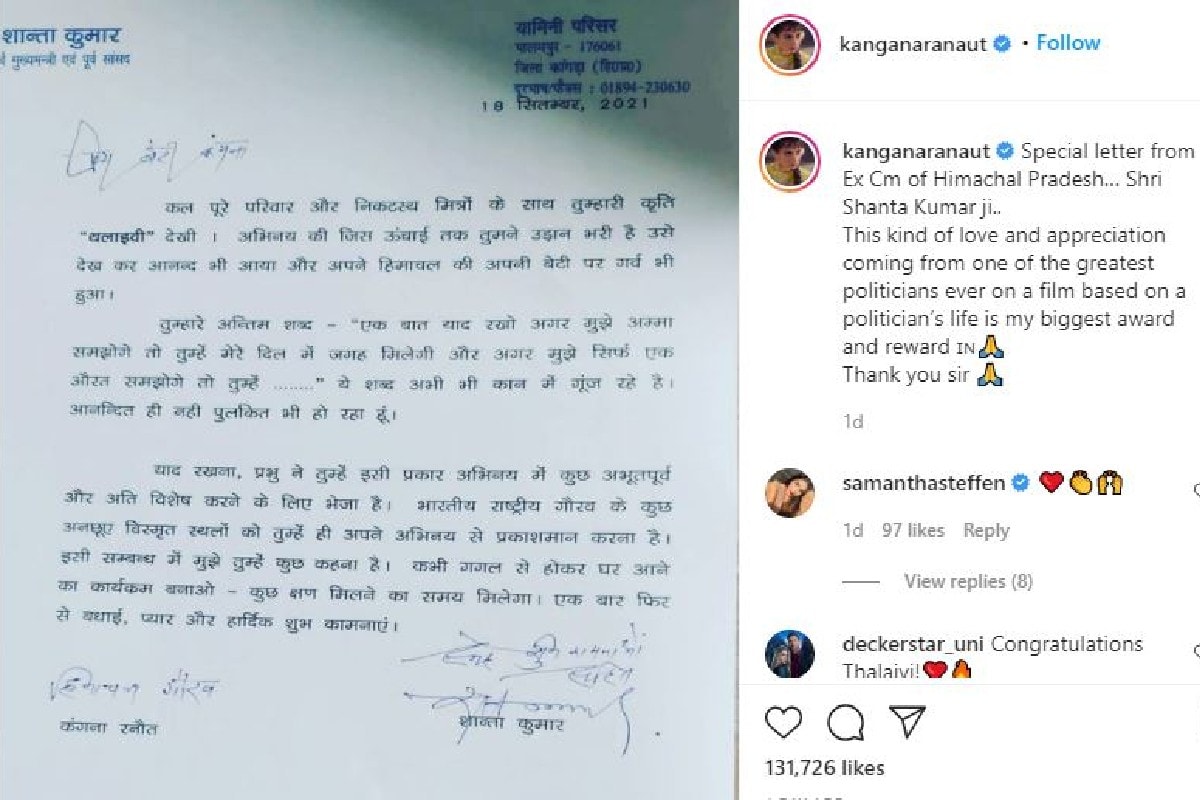 शान्ता कुमार
पूर्व मुख्यमन्त्री एवं पूर्व सांसद
यामिनी परिसर
पालमपुर - 176061
जिला कांगड़ा (हि०प्र०)
दूरभाष/फैक्स : 01894-230630
18 सितम्बर, 2021
प्रिय बेटी कंगना
कल पूरे परिवार और निकटस्थ मित्रों के साथ तुम्हारी कृति
“थलाइवी” देखी । अभिनय की जिस ऊंचाई तक तुमने उड़ान भरी है उसे
देख कर आनन्द भी आया और अपने हिमाचल की अपनी बेटी पर गर्व भी
हुआ।
तुम्हारे अन्तिम शब्द - “एक बात याद रखो अगर मुझे अम्मा
समझोगे तो तुम्हें मेरे दिल में जगह मिलेगी और अगर मुझे सिर्फ एक
औरत समझोगे तो तुम्हें ........” ये शब्द अभी भी कान में गूंज रहे है।
आनन्दित ही नही पुलकित भी हो रहा हूं।
याद रखना, प्रभु ने तुम्हें इसी प्रकार अभिनय में कुछ अभूतपूर्व
और अति विशेष करने के लिए भेजा है। भारतीय राष्ट्रीय गौरव के कुछ
अनछूए विस्मृत स्थलों को तुम्हें ही अपने अभिनय से प्रकाशमान करना है।
इसी सम्बन्ध में मुझे तुम्हें कुछ कहना है। कभी गगल से होकर घर आने
का कार्यक्रम बनाओ - कुछ क्षण मिलने का समय मिलेगा। एक बार फिर
से बधाई, प्यार और हार्दिक शुभ कामनाएं।
शुभ कामनाओं
सहित
हिमाचल गौरव
कंगना रनौत
शान्ता कुमार
kanganaranaut • Follow
kanganaranaut Special letter from
Ex Cm of Himachal Pradesh... Shri
Shanta Kumar ji..
This kind of love and appreciation
coming from one of the greatest
politicians ever on a film based on a
politician’s life is my biggest award
and reward IN🙏
Thank you sir 🙏
1d
samanthasteffen ❤️👏🙌
1d 97 likes Reply
View replies (8)
deckerstar_uni Congratulations
Thalaivi!❤️🔥
131,726 likes